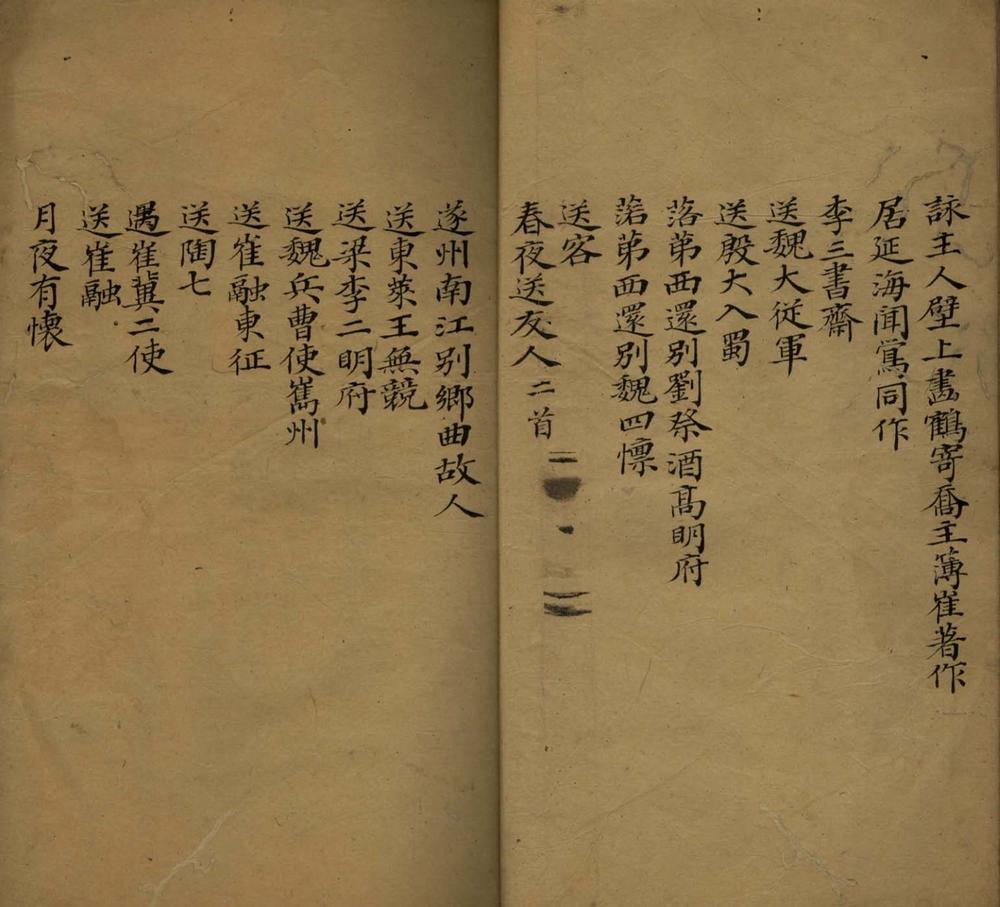 詠主人壁上畫鶴寄喬主簿崔著作
居延海聞鶯同作
李三書齋
送魏大従軍
送殷大入蜀
落苐西還別劉祭酒髙明府
落苐西還別魏四懍
送客
春夜送友人二首
遂州南江別鄉曲故人
送東萊王無競
送梁李二明府
送魏兵曹使嶲州
送崔融東征
送陶七
遇崔冀二使
送崔融
月夜有懷